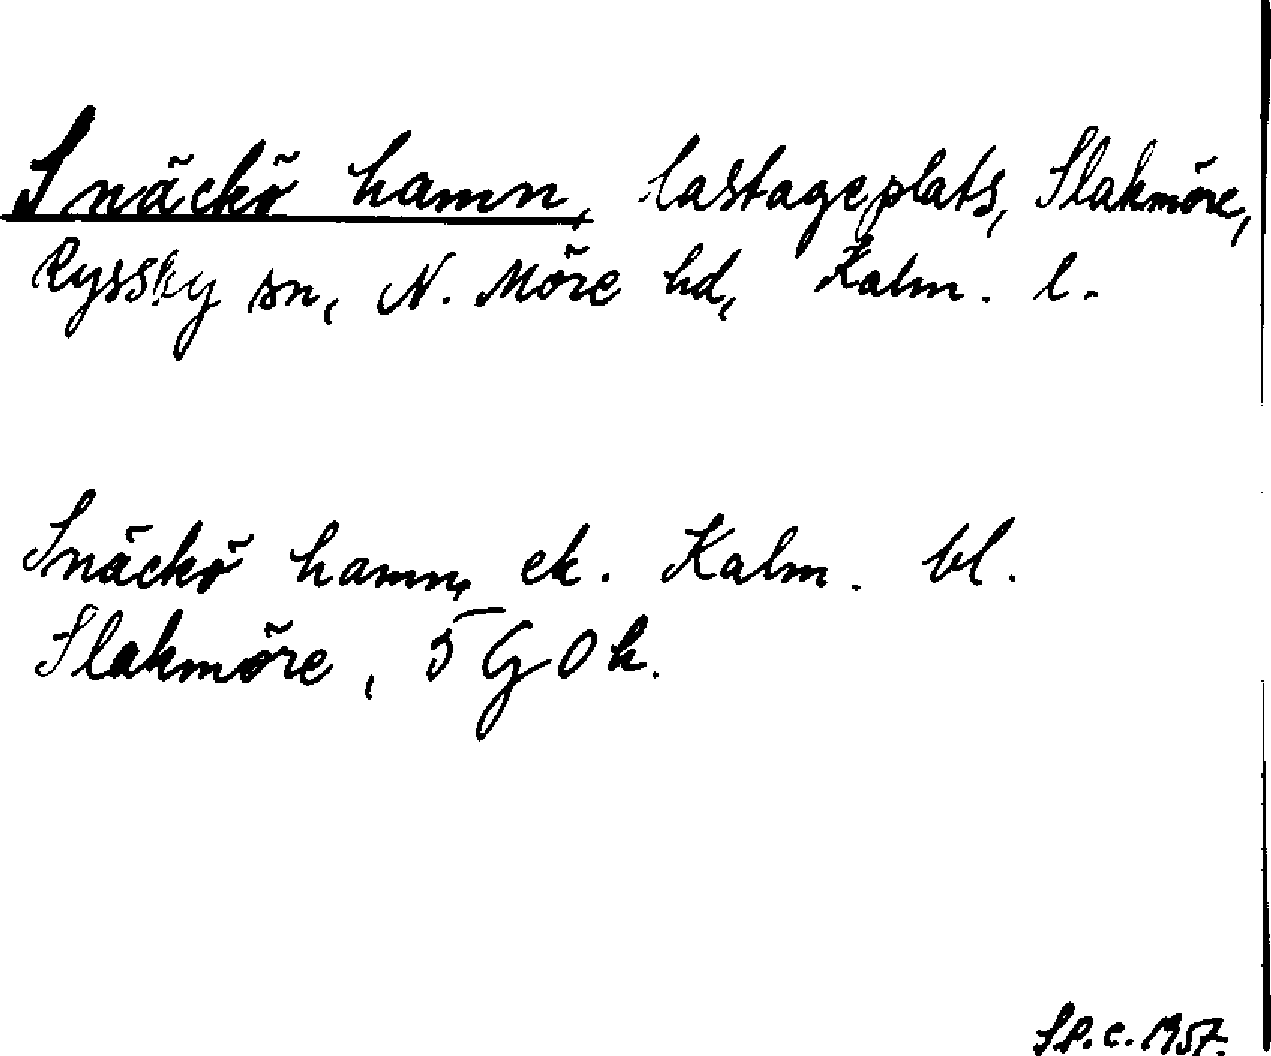 Snäckö hamn, lastageplats, Slakmöre,
Ryssby sn, N. Möre hd, Kalm. l.
Snäckö hamn, ek. Kalm. bl.
Slakmöre, 5 G 0 h.
Sp.c. 1957.